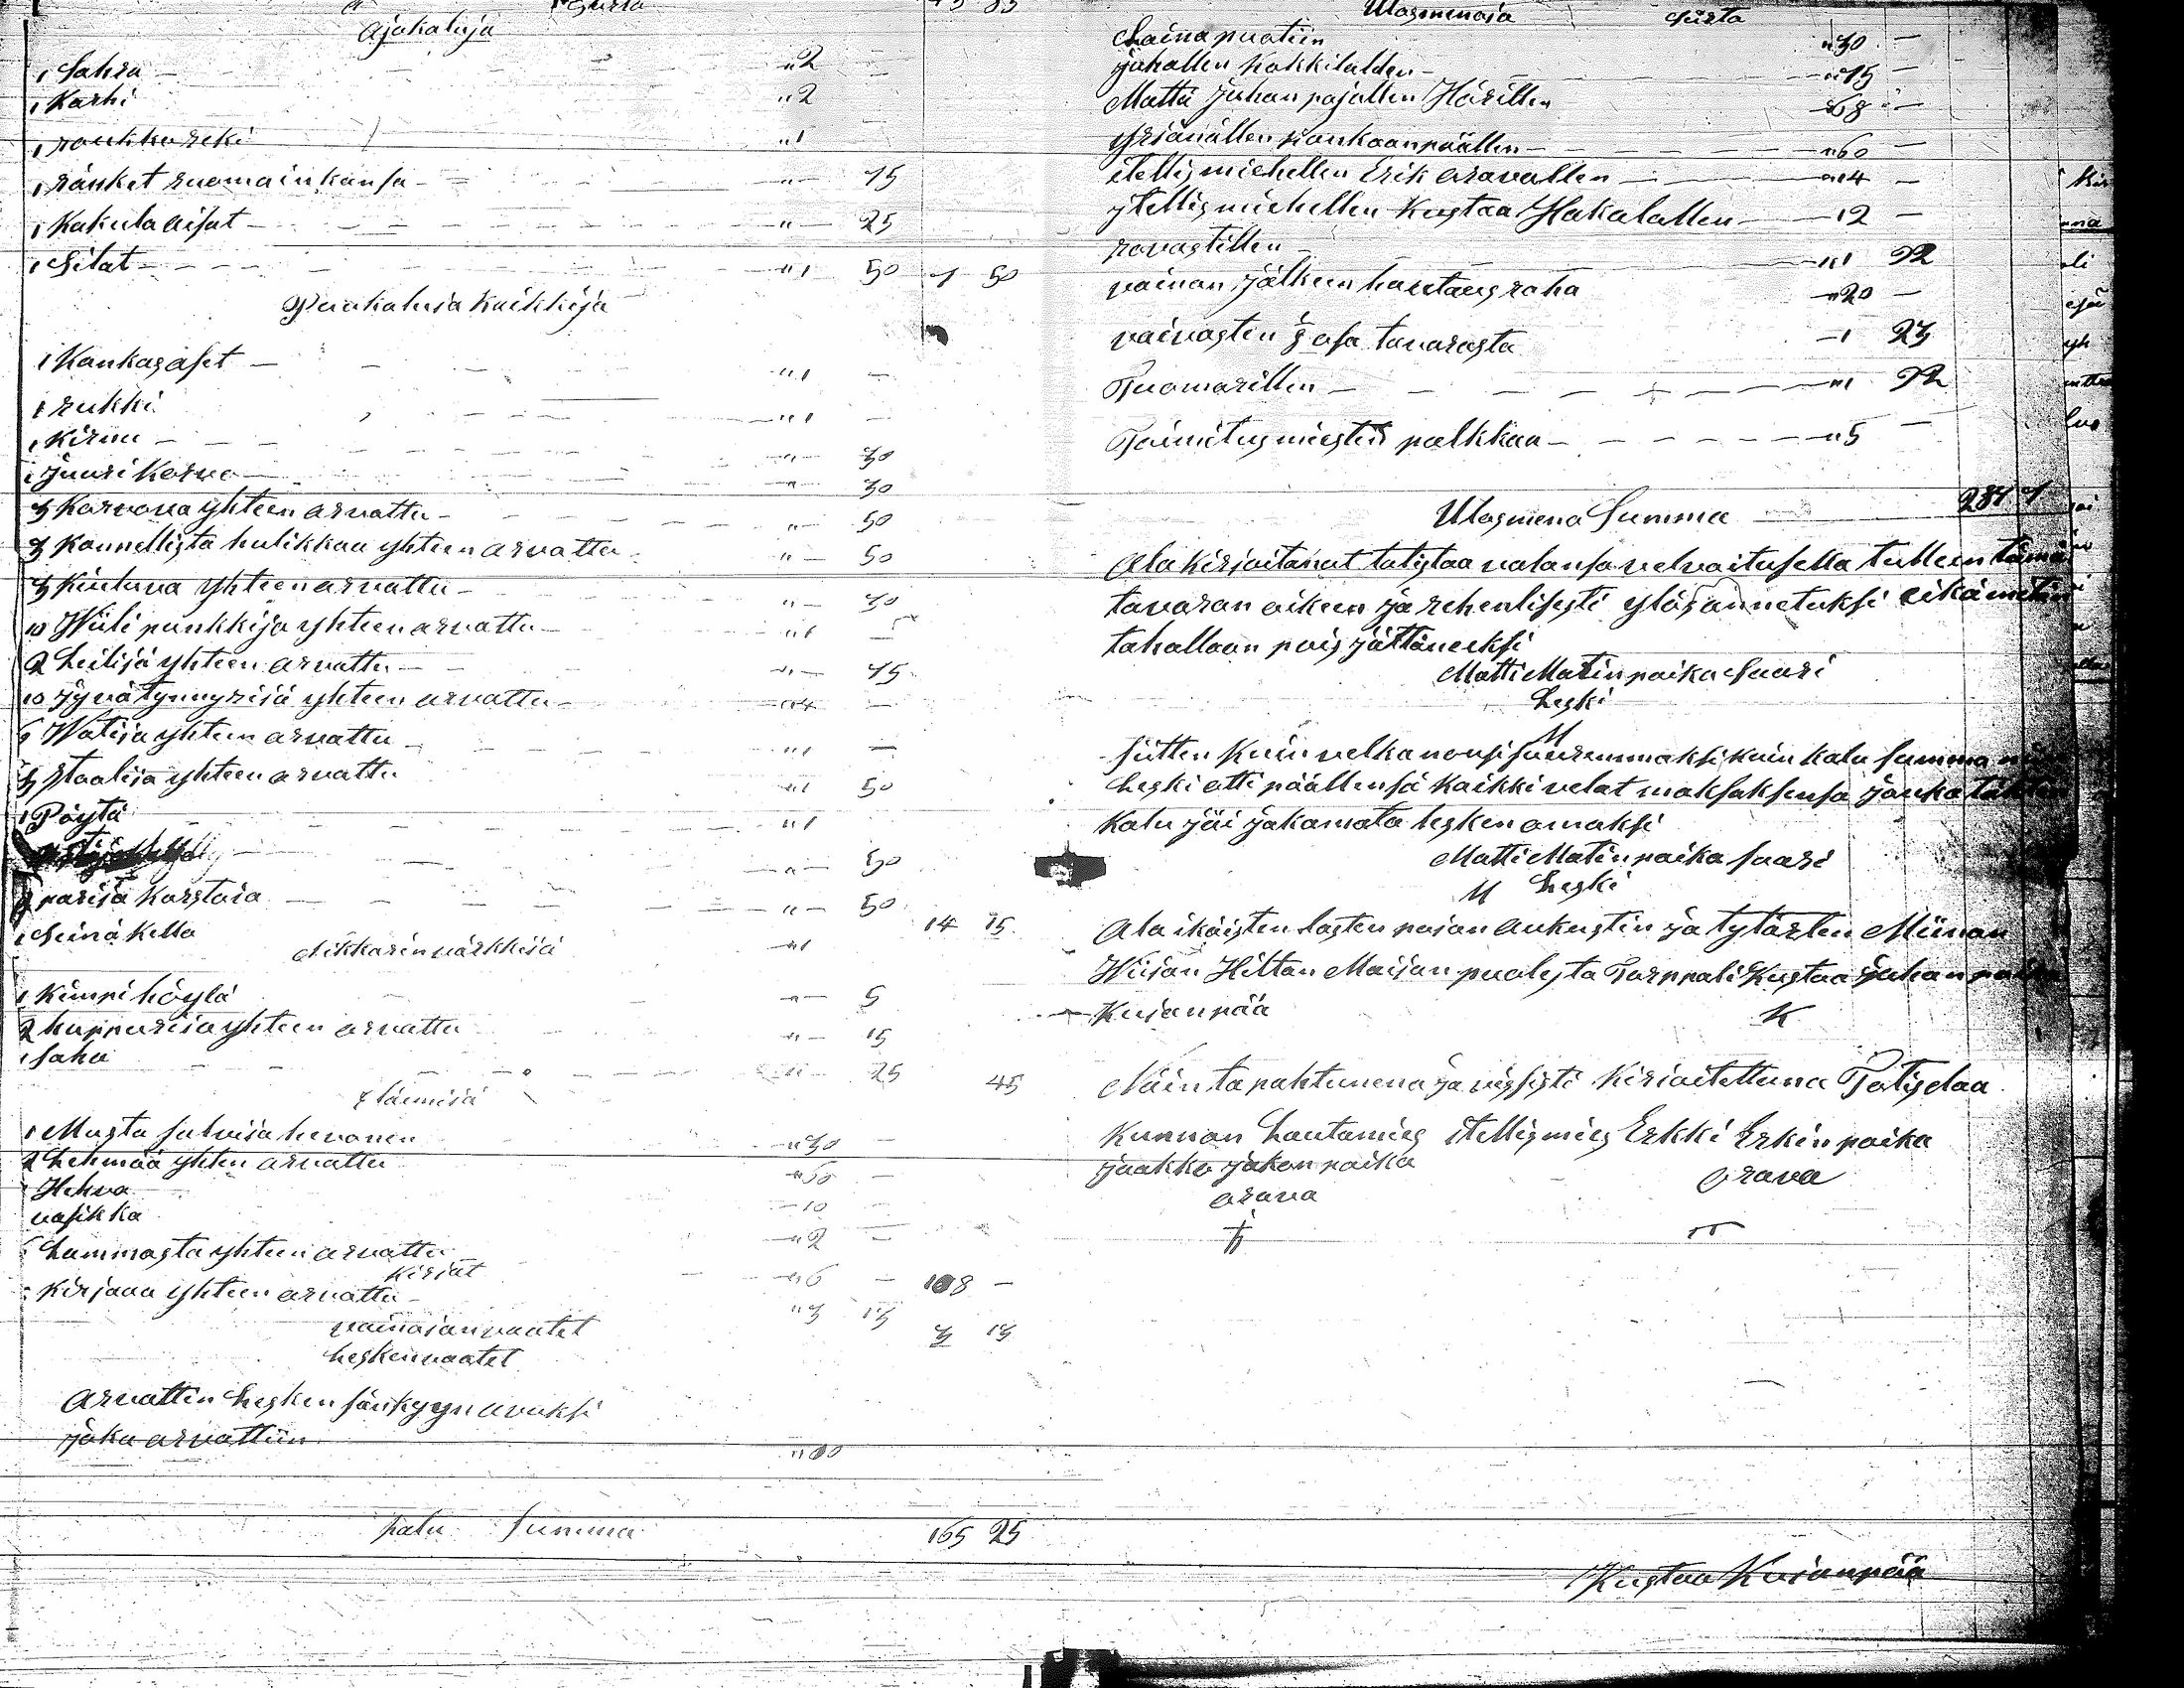 Ajokaluja
1 Sahra — „2 —
1 Karhi „2
1 roukkoreki „1
1 ränket ruomain kansa — „— 75
1 Kakulaaisat — „— 25
1 Silat — „1 50 7 50
Puukaluja kaikkija
1 Kankasaset — „1 —
1 rukki „1 —
1 Kirnu — „— 30
1 juurikorvo — „— 30
3 Korvova yhteen arvattu — „— 50
3 Kannellista hulikkaa yhteen arvattu „— 50
3 Kiuluva yhteen arvattu — „— 30
10 Wiili punkkija yhteen arvattu —
2 Leilijä yhteen arvattu — „— 75
10 Jyvätynnyrisä yhteen arvattu — „4 —
6 Watija yhteen arvattu — „1 —
3 staalija yhteen arvattu „1 50
1 Pöytä „1
„— 50
parija Karstoja — „— 50
1 Seinä Kello „1 14 15
Nikkarin värkkisä
1 Kimpi höylä „— 5
2 huppurija yhteen arvattu „— 15
1 saha „— 25 45
Eläimisä
1 Musta salvisa hevonen „30 —
2 Lehmää yhten arvattu „60 —
Hehvo — 10 —
vasikka „2 —
Lammasta yhteen arvattu „6 — 108 —
Kirjat
Kirjaaa yhteen arvattu — „3 13
3 13
vainajan vaatet
lesken vaatet
Arvattin Lesken sänkyyn avuksi
joka arvattiin „10
palu Summa 165 25
Ulosmenoja Siirto
Laina puotiin „30 —
juhallen Kokkilalden — „15 —
Matti Juhan pojallen Härillen 68 —
Yrjänällen Kankaanpäällen — „60 —
itellismiehellen Erik oravallen — „14 —
ytellismiehellen Kustaa Hakalallen — 12 —
rovastillen — „1 92
vainan jälkeen hautausraha „20 —
vaivasten ⅛ osa tavarasta — 1 23
Tuomarillen — „1 92
Toimitusmiesten palkkaa — „5 —
Ulosmeno Summa 287 7
Ala Kirjoitanut totistaa valansa velvoituksella tulleen tämän
tavaran oikeen ja rehenlisesti ylösannetuksi eikä mitän
tahallaan pois jättäneeksi
Matti Matin poika Saari
Leski
M
Siitten Kuin velka nousi suuremmaksi kuin kalu summa niin
Leski otti päällensä kaikki velat maksaksensa jonka tähden
Kalu jäi jakamata lesken omaksi
Matti Matin poika saari
M Leski
Ala ikäisten lasten pojan Aukustin ja tytärten Miinan
Wiijan Hiltan Maijan puolesta Torppali Kustaa juhan poika
Kujanpää
K
Näin tapahtunena ja vissisti Kirjoitettuna Totistaa
Kunnan Lautamies itellismies Erkki Erkin poika
jaakko jakon poika Orava
orava
Kustaa Kujanpää